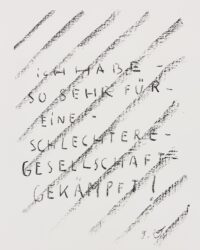 ICH HABE -
SO SEHR FÜR -
EINE -
SCHLECHTERE -
GESELLSCHAFT =
GEKÄMPFT!